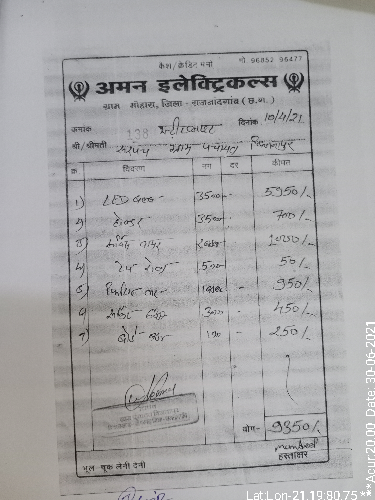 कैश/क्रेडिट मेमो
मो. 96852 96477
अमन इलेक्ट्रिकल्स
ग्राम - मोहारा, जिला - राजनांदगांव (छ.ग.)
क्रमांक 138 दिनांक 10/4/21
श्री/श्रीमती सरपंच ग्राम पंचायत
क्र. विवरण नग दर कीमत
1) LED बल्ब 35नग - 5950/-
2) होल्डर 35नग - 700/-
3) सर्विस वायर 1000/-
4) टेप रोल 5नग - 50/-
5) 950/-
6) 450/-
7) बोर्ड 1नग - 250/-
योग- 9350/-
हस्ताक्षर
भूल-चूक लेनी देनी
Lat Lon-21.19:80.75
***Acur:20.00, Date: 30-06-2021 ***